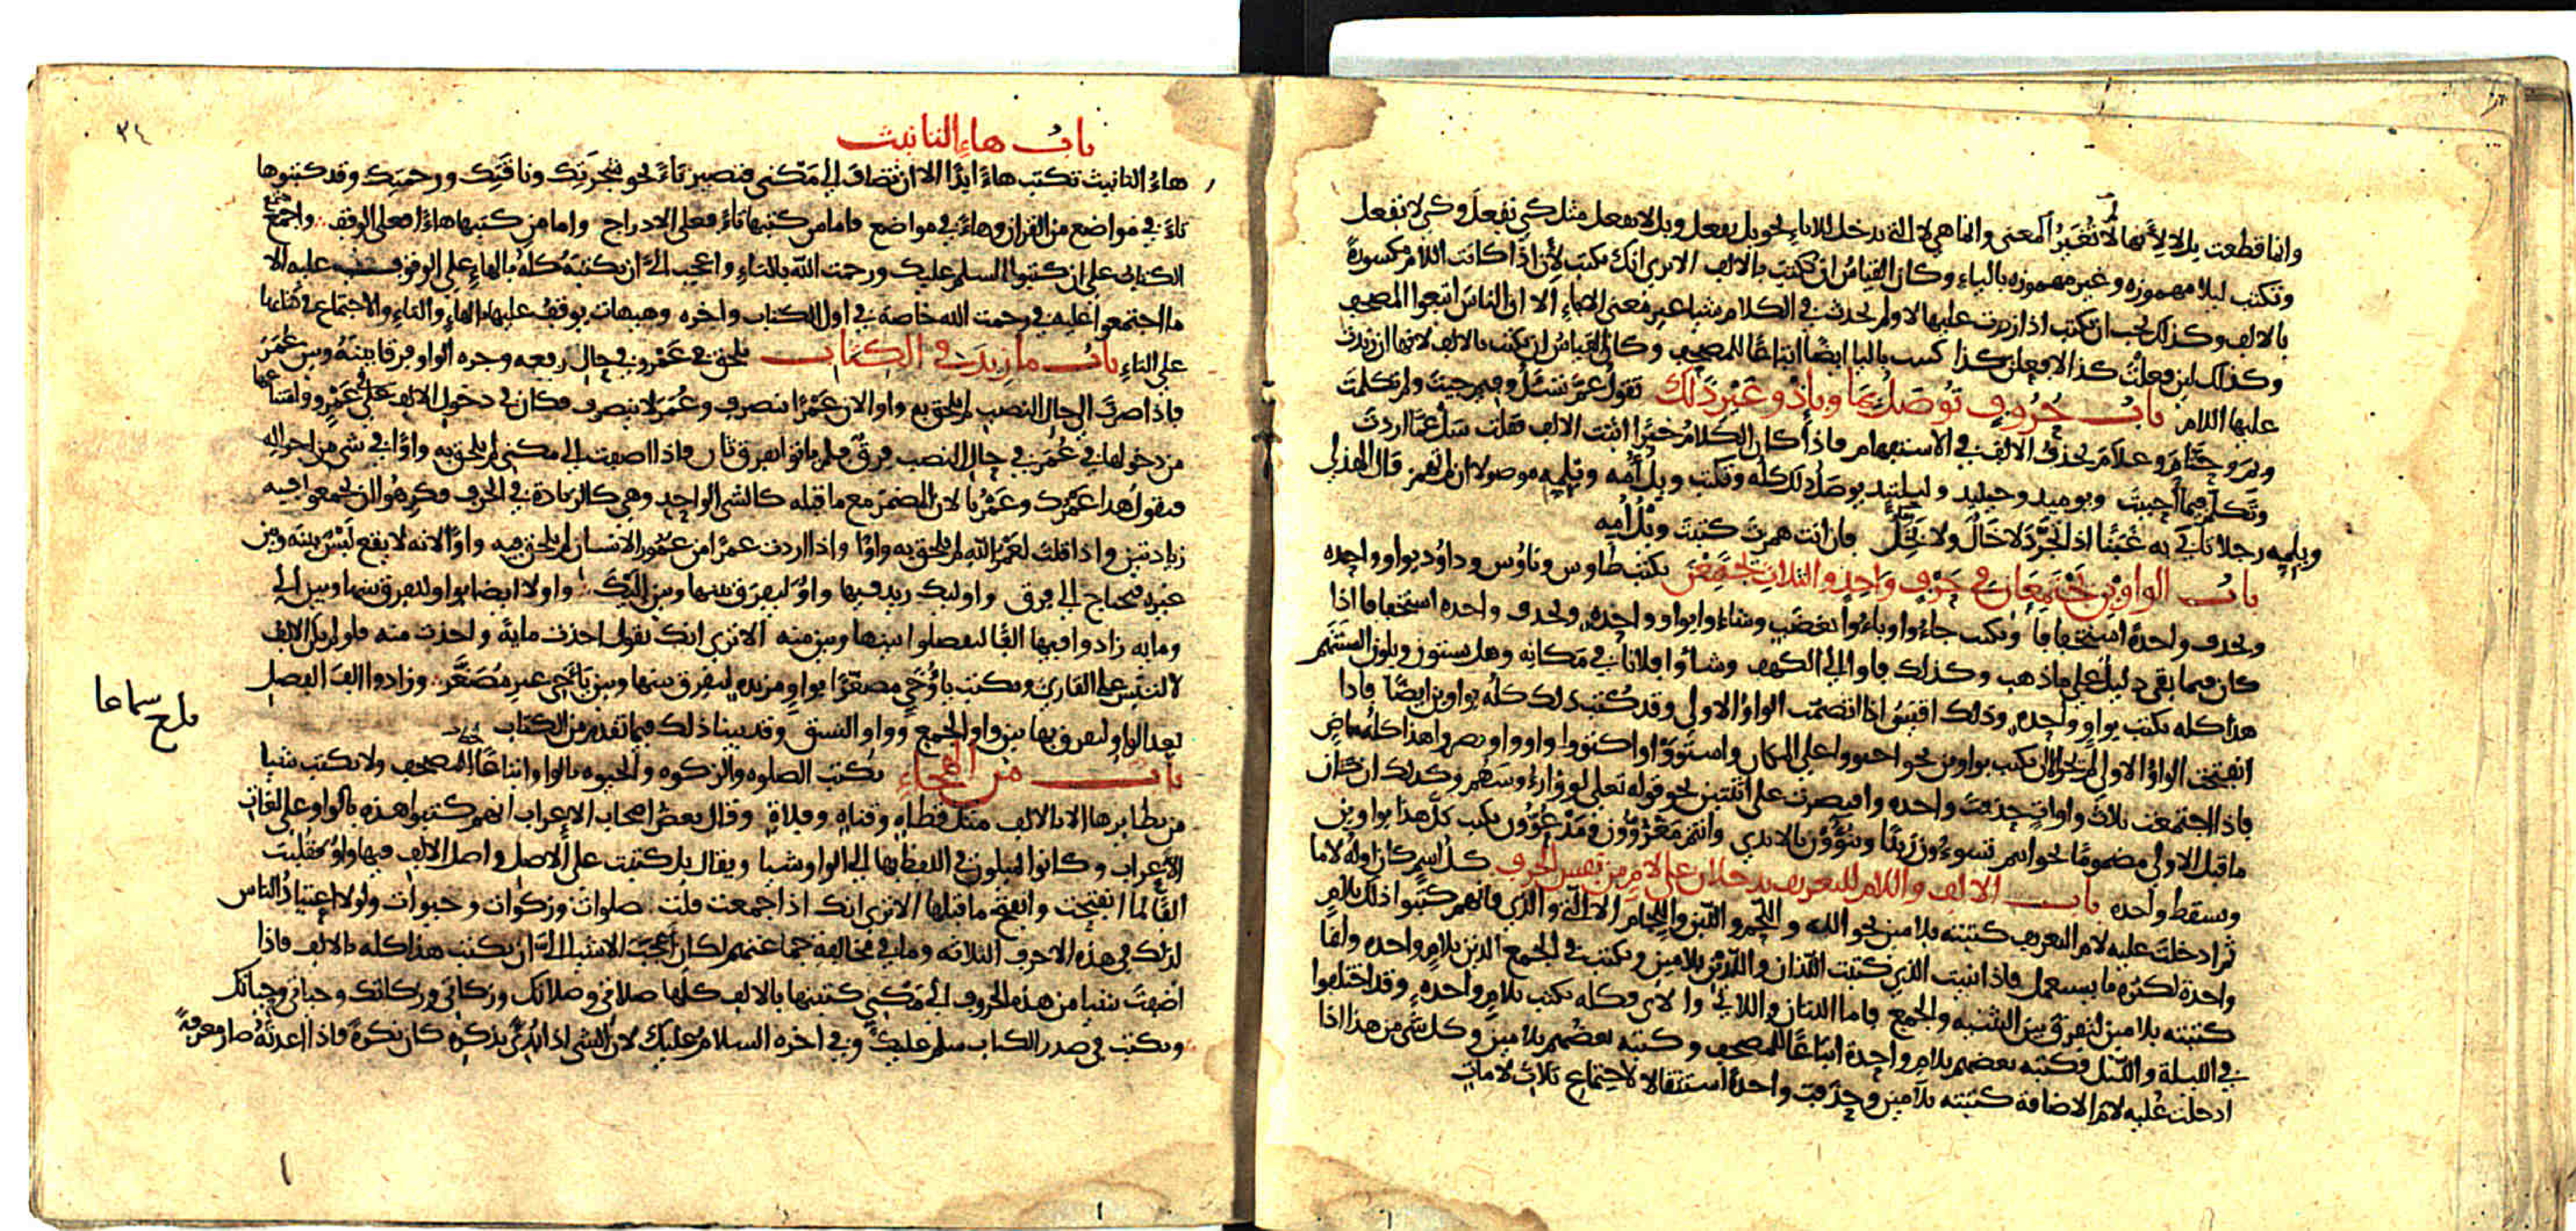 وانما قطعت بل لا لأنها لم تغير المعنى وانما هي لا التي تدخل للاباء نحو بل يفعل وبل لا يفعل مثل كي تفعل وكي لا تفعل
وتكتب ليلا مهموزه وغير مهموزه بالياء وكان القياس ان تكتب بالالف الا ترى انك تكتب لأن اذا كانت اللام مكسورة
بالالف وكذلك يجب ان تكتب اذا زدت عليها لا ولم تحدث في الكلام شيا غير معنى الاباء الا ان الناس اتبعوا المصحف
وكذلك لين فعلت كذا لافعلن كذا كتبت باليا ايضا اتباعا للمصحف وكان القياس ان تكتب بالالف لانها ان زيدت
عليها اللام باب حروف توصل بما وباذ وغير ذلك تقول عم تسئل وفيم جيت ولم تكلمت
وبم وحتام وعلام تحذف الالف في الاستفهام فاذا كان الكلام خبرا اثبت الالف فقلت سل عما اردت
وتكلم فيما احببت ويوميد وحينيد وليلتيد يوصل ذلك كله وتكتب ويل امه وويلمه موصولا ان لم تهمز قال الهذلي
ويلمه رجلا تابى به غبنا اذا تجرد لا خال ولا بخل فان انت همزت كتبت ويل امه
باب الواوين تجتمعان في حرف واحد والثلاث تجتمعن تكتب طاوس وناوس وداود بواو واحده
وتحذف واحدة استخفافا وتكتب جاءوا وباءوا بغضب وشاءوا بواو واحده وتحذف واحده استخفافا اذا
كان فيما بقى دليل على ما ذهب وكذلك فاوا الى الكهف وشأوا فلانا في مكانه وهل يستون ويلون السنتهم
هذا كله يكتب بواو واحده وذلك اقيس اذا انضمت الواو الاولى وقد كتب ذلك كله بواوين ايضا فاذا
انفتحت الواو الاولى لم يجز الا ان تكتب بواوين نحو احتووا على المكان واستووا واكتووا واووا ونصروا هذا كله ماض
فاذا اجتمعت ثلاث واوات حذفت واحده واقتصرت على اثنتين نحو قوله تعلى لووا رءوسهم وكذلك ان كان
ما قبل الاولى مضموما نحو انتم تسوءون زيدا وتنوءون بالايدي وانتم مغزوون ومدعوون تكتب كل هذا بواوين
وتسقط واحده باب الالف واللام للتعريف يدخلان على لام من نفس الحرف كل اسم كان اوله لاما
ثم ادخلت عليه لام التعريف كتبته بلامين نحو اللهم واللحم واللبن واللجام الا التي والذي فانهم كتبوا ذلك بلام
واحدة لكثرة ما يستعمل فاذا ثنيت الذي كتبت اللذان واللذين بلامين وتكتب في الجمع الذين بلام واحده وانما
كتبته بلامين لتفرق بين التثنيه والجمع فاما اللتان واللاتي والاى فكله يكتب بلام واحده وقد اختلفوا
في الليلة والليل فكتبه بعضهم بلام واحدة اتباعا للمصحف وكتبه بعضهم بلامين وكل شي من هذا اذا
ادخلت عليه لام الاضافة كتبته بلامين وحذفت واحدة استثقالا لاجتماع ثلاث لامات
٣٤
باب هاء التانيث
هاء التانيث تكتب هاء ابدا الا ان تضاف الى مكني فتصير تاء نحو شجرتك وناقتك ورحمتك وقد كتبوها
تاء في مواضع من القران وهاء في مواضع فاما من كتبها تاء فعلى الادراج واما من كتبها هاء فعلى الوقف واجمع
الكتاب على ان كتبوا السلم عليك ورحمت الله بالتاء واعجب الى ان تكتبه كله بالهاء على الوقوف عليه الا
ما اجتمعوا عليه في رحمت الله خاصة في اول الكتاب واخره وهيهات يوقف عليها بالهاء والتاء والاجتماع في كتابها
على التاء باب ما زيدت في الكتاب تلحق في عمرو في حال رفعه وجره الواو فرقا بينه وبين عمر
فاذا صرت الى حال النصب لم تلحق به واوا لان عمرا ينصرف وعمر لا ينصرف فكان في دخول الالف في عمرو وامتناعها
من دخولها في عمر في حال النصب فرق فلم ياتوا بفرق ثان فاذا اضفت الى مكني لم تلحق به واوا في شي من احواله
فتقول هذا عمرك وعمرنا لان المضمر مع ما قبله كالشي الواحد وهي كالزيادة في الحرف فكرهوا ان يجمعوا فيه
زيادتين واذا قلت لعمر الله لم تلحق به واوا واذا اردت عمرا من عمور الانسان لم تلحق فيه واوا لانه لا يقع لبس بينه وبين
غيره فتحتاج الى فرق واوليك زيد فيها واو ليفرق بينها وبين اليك واولا ايضا بواو ليفرق بينها وبين الى
ومايه زادوا فيها الفا ليفصلوا بينها وبين منه الا ترى انك تقول اخذت ماية واخذت منه فلو لم تكن الالف
لالتبس على القارئ ويكتب يا اوخي مصغرا بواو مزيده ليفرق بينها وبين يا اخي غير مصغر وزادوا الف الفصل
بعد الواو ليفرق بها بين واو الجمع وواو النسق وقد بينا ذلك فيما تقدم من الكتاب
باب من الهجاء تكتب الصلوه والزكوه والحيوه بالواو اتباعا للمصحف ولا تكتب شيا
من نظايرها الا بالالف مثل قطاه وقناه وفلاه وقال بعض اصحاب الاعراب انهم كتبوا هذه بالواو على لغات
الاعراب وكانوا يميلون في اللفظ بها الى الواو شيا ويقال بل كتبت على الاصل واصل الالف فيها واو فقلبت
الفا لما انفتحت وانفتح ما قبلها الا ترى انك اذا جمعت قلت صلوات وزكوات وحيوات ولولا اعتياد الناس
لذلك في هذه الاحرف الثلاثه وما في مخالفة جماعتهم لكان احب الاشيا الى ان يكتب هذا كله بالالف فاذا
اضفت شيا من هذه الحروف الى مكني كتبتها بالالف كلها صلاتي وصلاتك وزكاتي وزكاتك وحياتي وحياتك
وتكتب في صدر الكتاب سلم عليك وفي اخره السلام عليك لان الشي اذا ابتدئ بذكره كان نكرة فاذا اعدته صار معرفة
بلغ سماعا